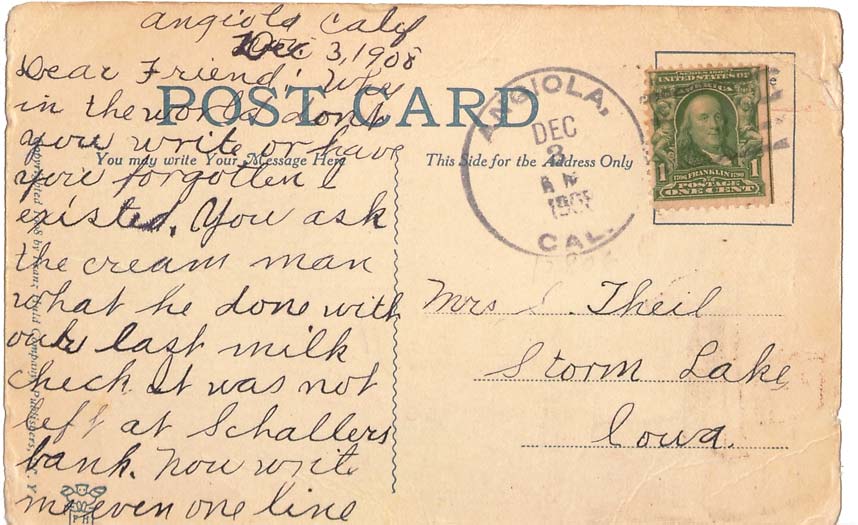 Angiola Calif
Dec 3, 1908
Dear Friend; Why
in the world dont
you write or have
you forgotten I
existed. You ask
the cream man
what he done with
our last milk
check It was not
left at Schallers
bank. Now write
me even one line
POST CARD
You may write Your Message Here
This Side for the Address Only
ANGIOLA,
DEC
3
1908
CAL.
SERIES 1902
UNITED STATES OF
AMERICA
1 1
1706 FRANKLIN 1790
POSTAGE
ONE CENT
Mrs Theil
Storm Lake
Iowa.